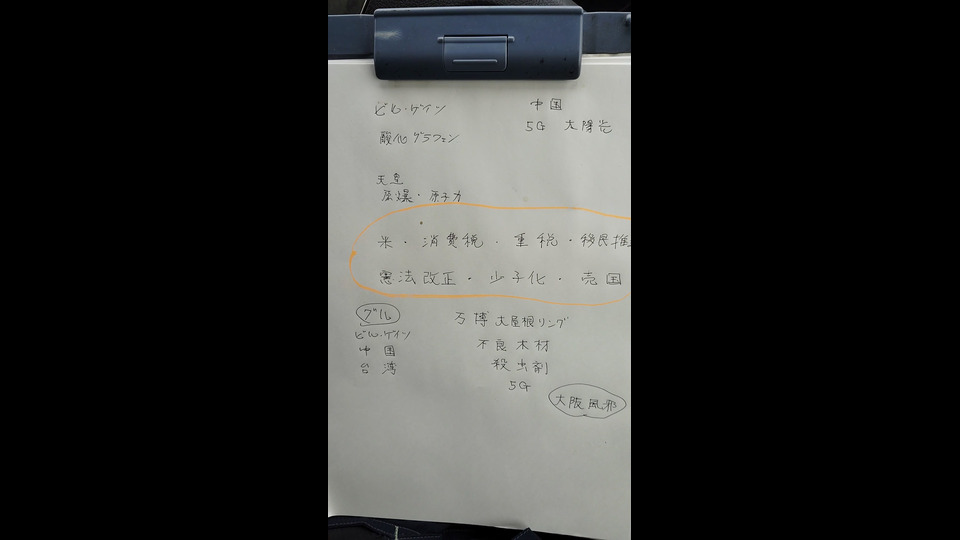 ビル・ゲイン
中国
5G 太陽光
酸化グラフェン
天皇
原爆・原子力
米・消費税・重税・移民推
憲法改正・少子化・売国
グル
ビル・ゲイン
中国
台湾
万博大屋根リング
不良木材
殺虫剤
5G
大阪風邪